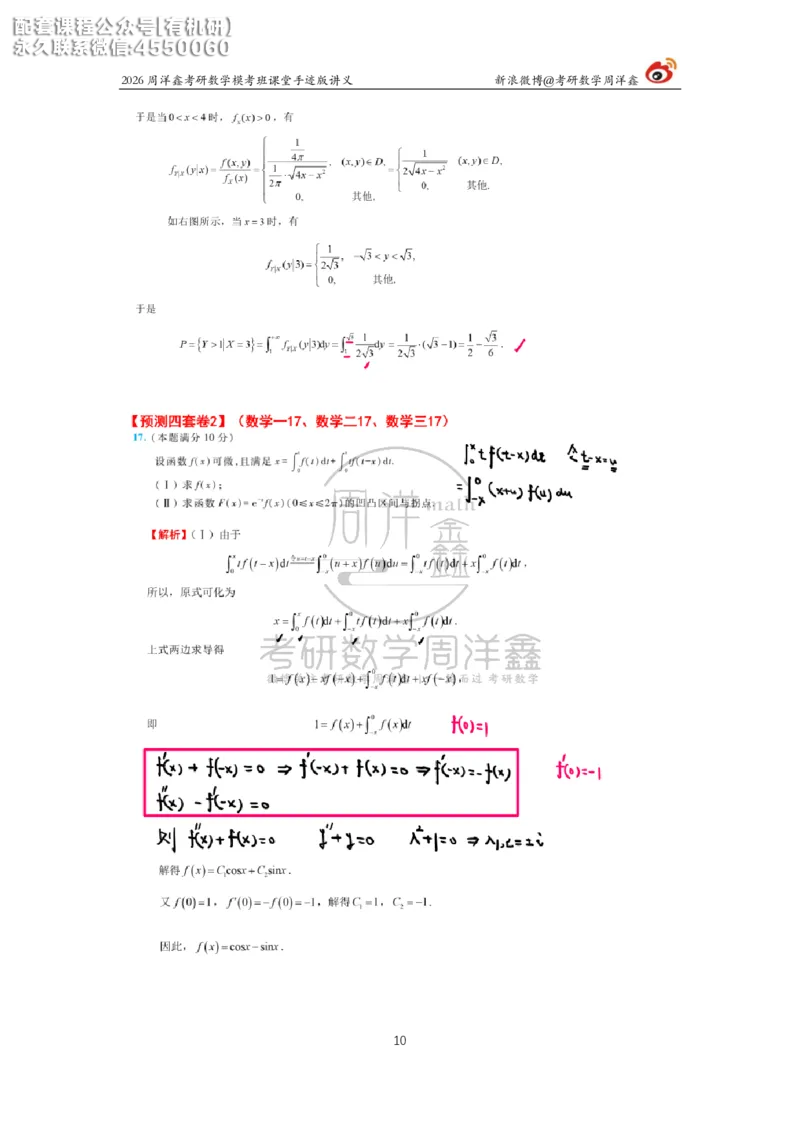 配套课程公众号[有机研]
永久联系微信:4550060
2026周洋鑫考研数学模考班课堂手迹版讲义 新浪微博@考研数学周洋鑫
于是当0<x<4时，f_X(x)>0，有
f_{Y|X}(y|x)=f(x,y)/f_X(x)={ (1/4π)/((1/2π)·√(4x-x²)), (x,y)∈D, 0, 其他, ={ 1/(2√(4x-x²)), (x,y)∈D, 0, 其他.
如右图所示，当x=3时，有
f_{Y|X}(y|3)={ 1/(2√3), -√3<y<√3, 0, 其他.
于是
P={Y>1|X=3}=∫_1^{+∞} f_{Y|X}(y|3)dy=∫_1^{√3} 1/(2√3) dy=1/(2√3)·(√3-1)=1/2-√3/6.
【预测四套卷2】（数学一17、数学二17、数学三17）
17.（本题满分10分）
设函数f(x)可微,且满足x=∫_0^x f(t)dt+∫_0^x tf(t-x)dt.
（Ⅰ）求f(x)；
（Ⅱ）求函数F(x)=e^{-x}f(x)(0≤x≤2π)的凹凸区间与拐点.
∫_0^x t f(t-x)dt 令t-x=u
=∫_{-x}^0 (x+u) f(u)du
【解析】（Ⅰ）由于
∫_0^x tf(t-x)dt 令u=t-x ∫_{-x}^0 (u+x)f(u)du=∫_{-x}^0 tf(t)dt+x∫_{-x}^0 f(t)dt，
所以，原式可化为
x=∫_0^x f(t)dt+∫_{-x}^0 tf(t)dt+x∫_{-x}^0 f(t)dt.
上式两边求导得
1=f(x)-xf(-x)+∫_{-x}^0 f(t)dt+xf(-x)，
即 1=f(x)+∫_{-x}^0 f(x)dt f(0)=1
f'(x)+f(-x)=0 ⇒ f'(-x)+f(x)=0 ⇒ f'(-x)=-f(x) f'(0)=-1
f''(x)-f'(-x)=0
则 f''(x)+f(x)=0 y''+y=0 λ²+1=0 ⇒ λ1,2=±i
解得f(x)=C₁cosx+C₂sinx.
又f(0)=1，f'(0)=-f(0)=-1，解得C₁=1，C₂=-1.
因此，f(x)=cosx-sinx.
周洋鑫
考研数学周洋鑫
10